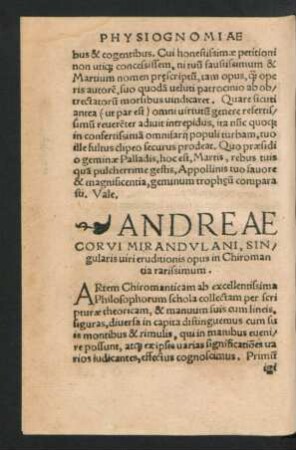 PHYSIOGNOMIAE
bus & cogentibus. Cui honestissimæ petitioni
non utiqȝ concessissem, ni tuũ faustissimum &
Martium nomen pr̨scriptũ, tam opus, q̃ ope
ris autorẽ, suo quodã ueluti patrocinio ab ob/
trectatorũ morsibus uindicaret. Quare sicuti
antea (ut par est) omni uirtutũ genere refertis/
simũ reuerẽter adiuit intrepidus, ita nũc quoqȝ
in confertissimã omnifariȩ populi turbam, tuo
ille fultus clipeo securus prodeat. Quo præsidi
o geminæ Palladis, hoc est, Martis, rebus tuis
quã pulcherrime gestis, Appollinis tuo fauore
& magnificentia, geminum trophȩũ compara
sti. Vale.
ANDREAE
CORVI MIRANDVLANI, SIN/
gularis uiri eruditionis opus in Chiroman
tia rarissimum.
ARtem Chiromanticam ab excellentissima
Philosophorum schola collectam per scri
pturæ theoricam, & manuum suis cum lineis,
figuras, diuersa in capita distinguemus cum su
is montibus & rimulis, qui in manibus eueni/
re possunt, atqȝ ex ipsis varias significatiões ua
rios iudicantes, effectus cognoscimus. Primũ
igi